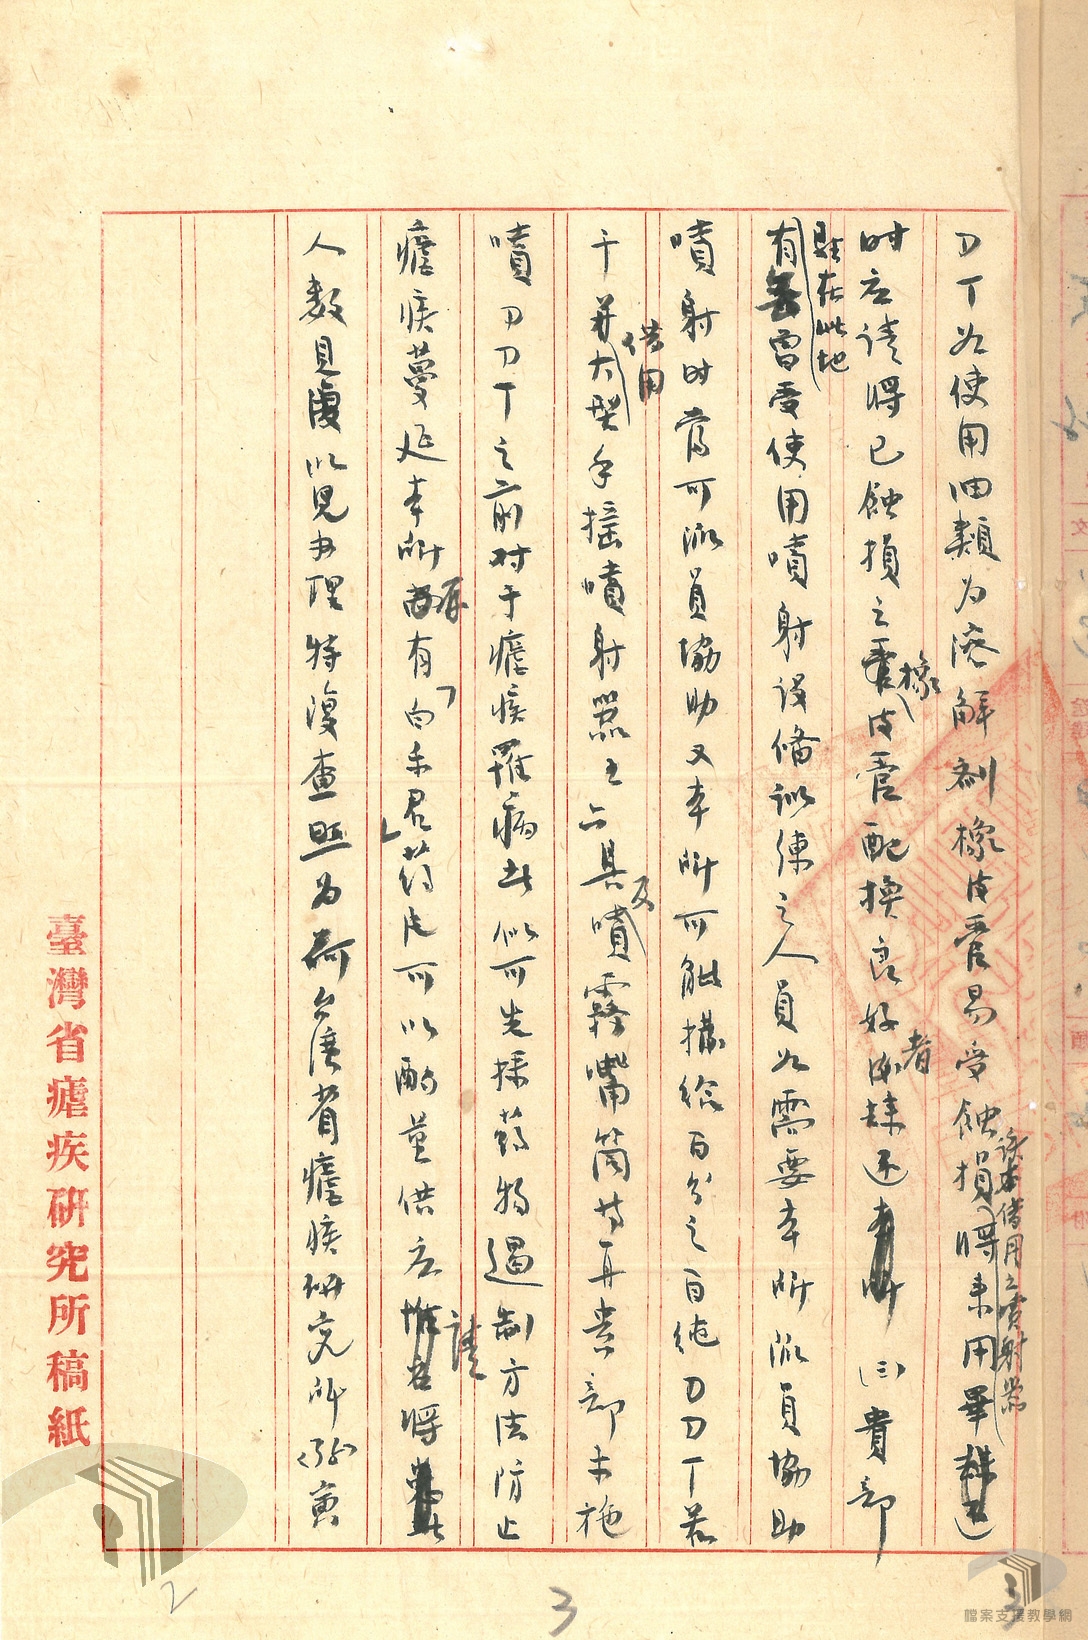 DT如使用油類為溶解劑橡皮管易受蝕損將來用畢
該本借用之噴射器
時应请將已蝕損之皮管配換良好歸還 (三)貴部
橡
者
駐在此地
有需要使用噴射設備訓練之人員如需要本所派員協助
噴射时當可派員協助又本所可能撥給百分之百純DDT若
供用
干并大型手搖噴射器五六具噴霧嘴筒等再貴部未施
及
噴DDT之前对于瘧疾罹病者似可先採葯物遏制方法防止
瘧疾蔓延本所有「白樂君」葯片可以酌量供应將
存
請
人數見復以便办理特復查照為荷台灣省瘧疾研究所 寅
臺灣省瘧疾研究所稿紙
2
3
3
檔案支援教學網